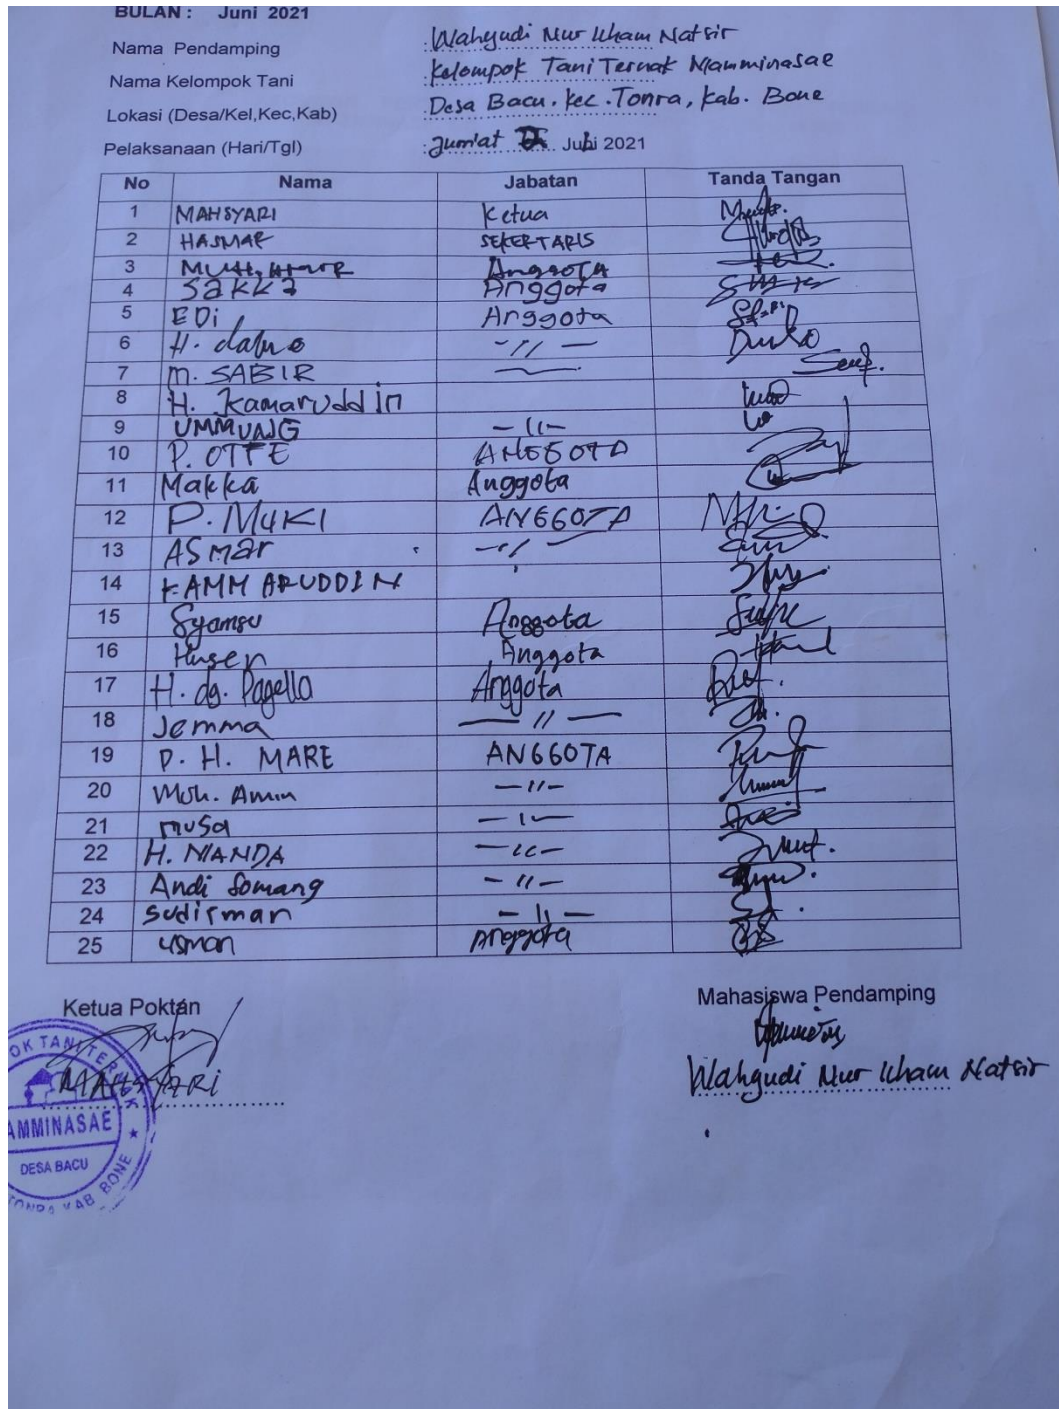 BULAN : Juni 2021
Nama Pendamping : Wahyudi Nur Ilham Natsir
Nama Kelompok Tani : Kelompok Tani Ternak Mamminasae
Lokasi (Desa/Kel,Kec,Kab) : Desa Bacu. Kec. Tonra, Kab. Bone
Pelaksanaan (Hari/Tgl) : Jum'at Juli 2021
No Nama Jabatan Tanda Tangan
1 MAHSYARI Ketua
2 HASMAR SEKERTARIS
3 Anggota
4 Sakka Anggota
5 EDi Anggota
6 H. -//-
7 M. SABIR
8 H. Kamaruddin
9 UMMUNG -//-
10 P. OTTE ANGGOTA
11 Makka Anggota
12 P. MUKI ANGGOTA
13 ASMar -//-
14 KAMMARUDDIN
15 Syamsu Anggota
16 Husen Anggota
17 H. dg. Pagella Anggota
18 Jemma — // —
19 P. H. MARE ANGGOTA
20 Moh. Amin -//-
21 musa -//-
22 H. NANDA -//-
23 Andi Somang -//-
24 Sudirman -//-
25 usman Anggota
Ketua Poktan
Mahasiswa Pendamping
MAHSYARI
Wahyudi Nur Ilham Natsir
OK TANI TERNAK
AMMINASAE
DESA BACU
TONRA KAB BONE ★